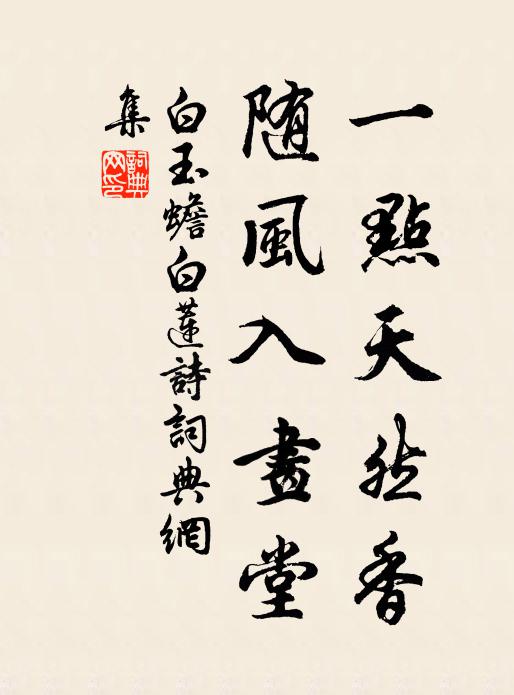 一點天然香
随風入畫堂
白玉蟾白蓮詩詞典網
集
詞典网印